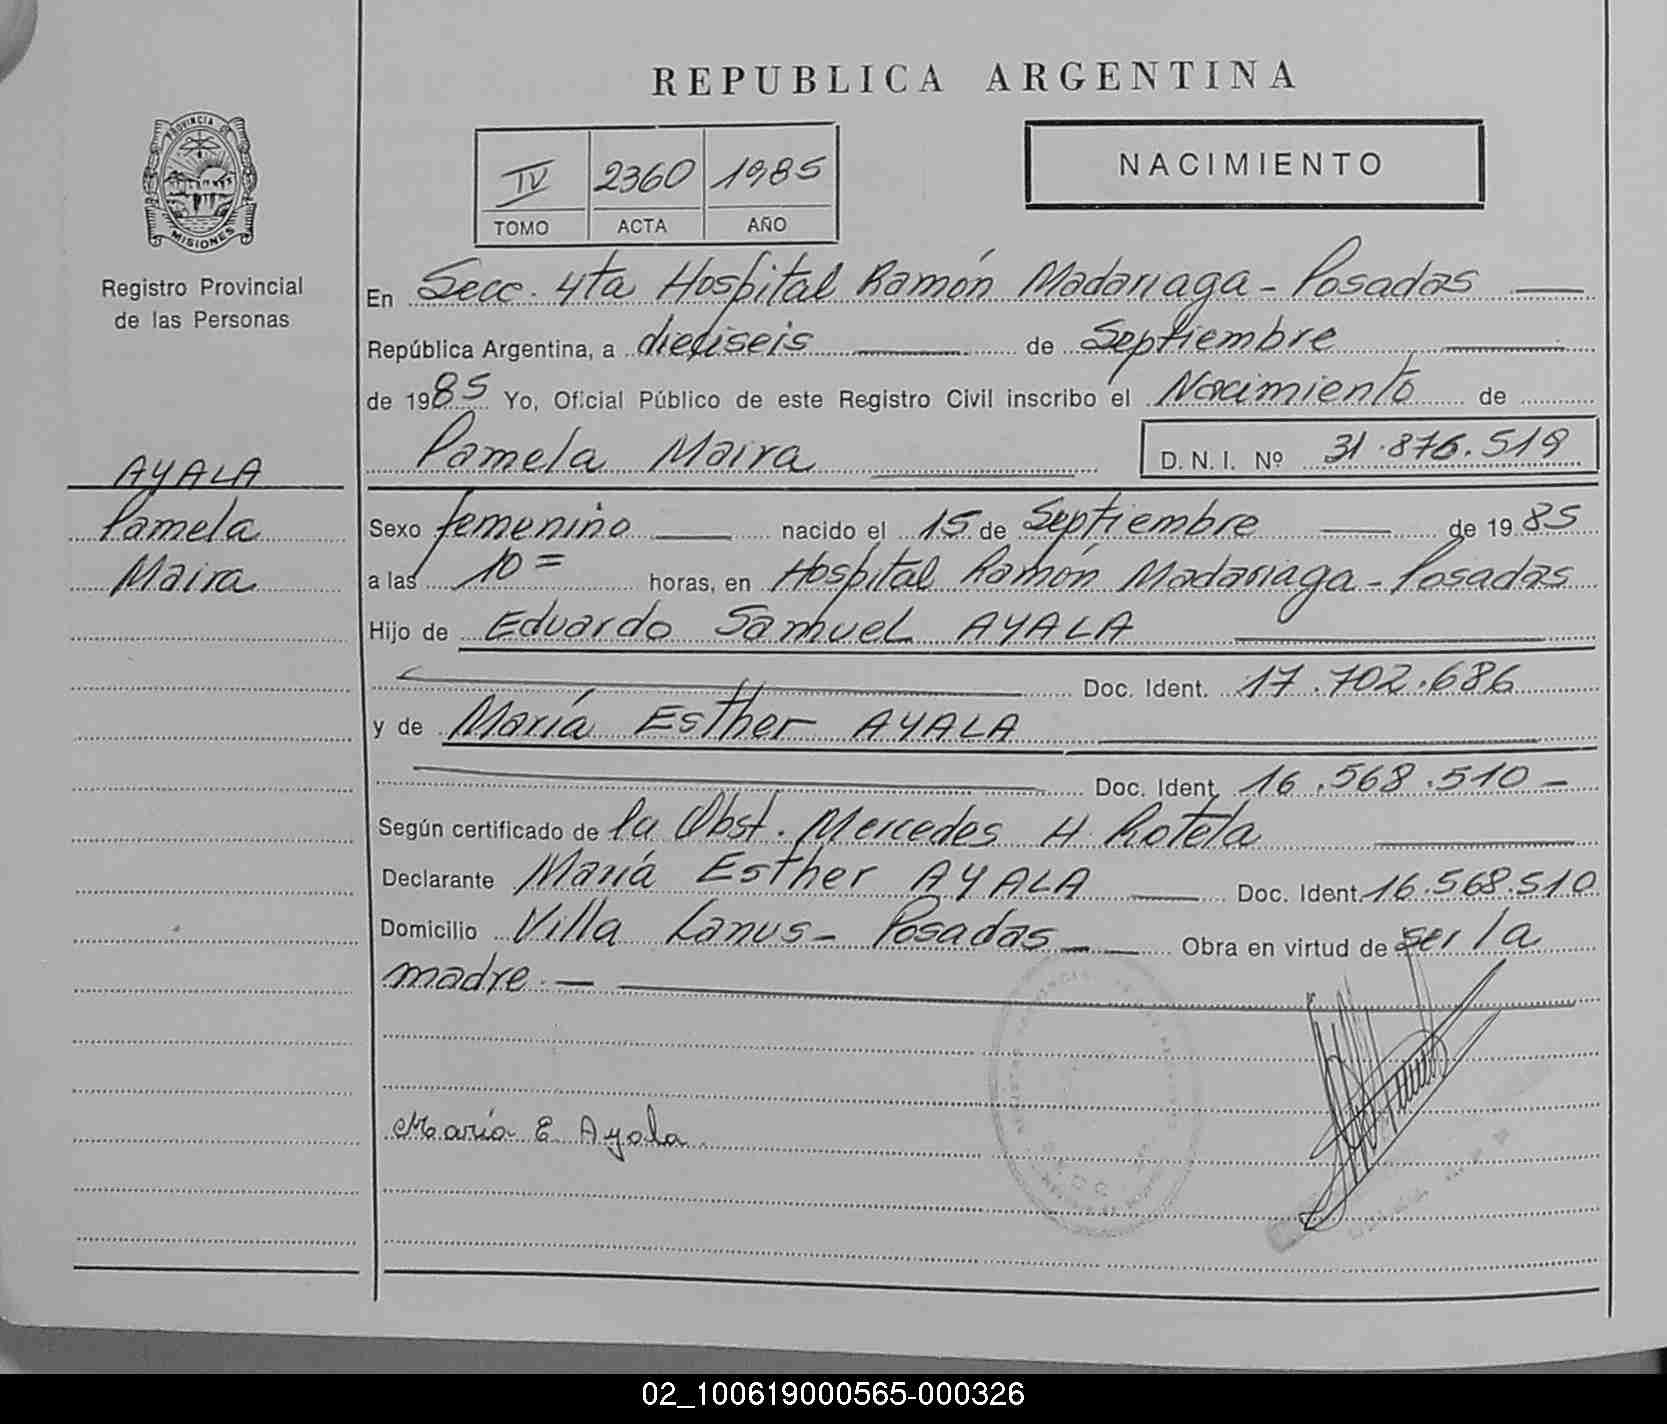 REPUBLICA ARGENTINA
PROVINCIA DE
MISIONES
Registro Provincial
de las Personas
IV 2360 1985
TOMO ACTA AÑO
NACIMIENTO
En Secc. 4ta Hospital Ramón Madariaga - Posadas
República Argentina, a dieciseis de Septiembre
de 1985 Yo, Oficial Público de este Registro Civil inscribo el Nacimiento de
Pamela Maira D. N. I. Nº 31.876.519
AYALA
Pamela
Maira
Sexo femenino nacido el 15 de Septiembre de 1985
a las 10= horas, en Hospital Ramón Madariaga - Posadas
Hijo de Eduardo Samuel AYALA
Doc. Ident. 17.702.686
y de María Esther AYALA
Doc. Ident. 16.568.510 -
Según certificado de la Obst. Mercedes H. Rotela
Declarante María Esther AYALA Doc. Ident. 16.568.510
Domicilio Villa Lanus - Posadas Obra en virtud de ser la
madre. -
María E Ayala
02_100619000565-000326